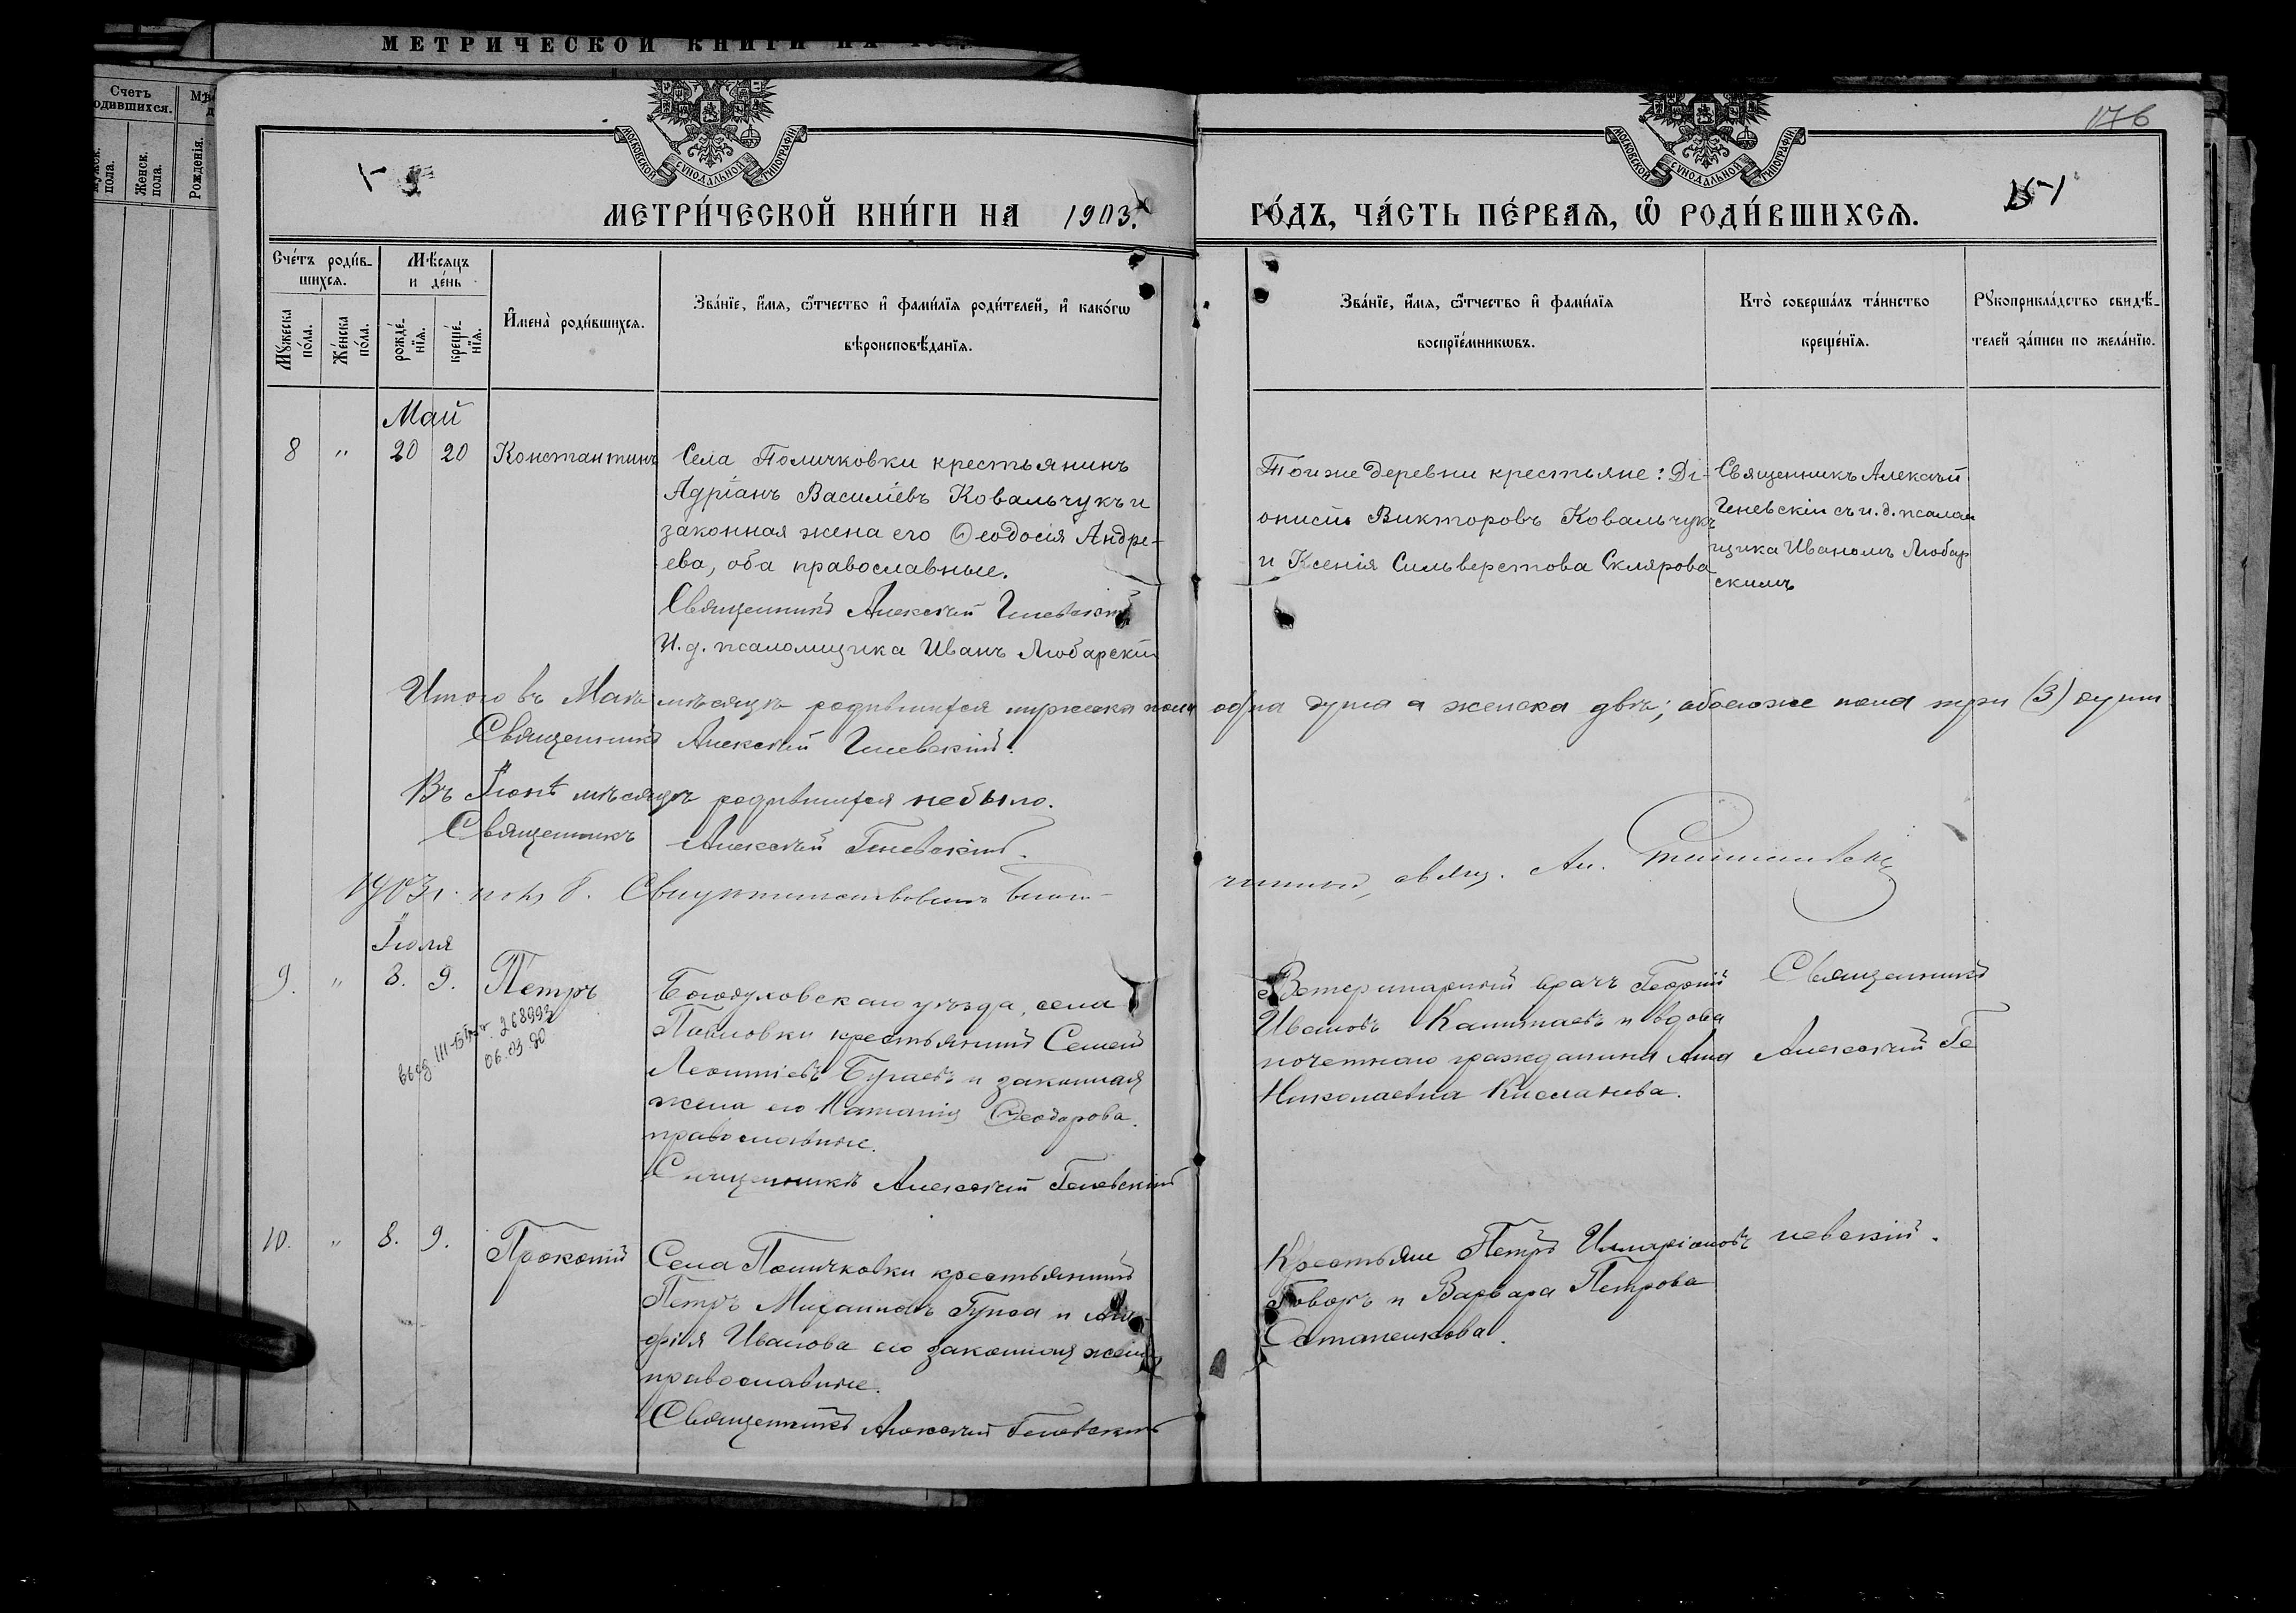 МЕТРИЧЕСКОЙ КНИГИ НА
Счетъ
одившихся.
пола.
Женск.
пола.
Рожденія.
МОСКОВСКОЙ СѴНОДАЛЬНОЙ ТИПОГРАФІИ
МОСКОВСКОЙ СѴНОДАЛЬНОЙ ТИПОГРАФІИ
176
МЕТРИ́ЧЕСКОЙ КНИ́ГИ НА 1903.
ГО́ДЪ, ЧА́СТЬ ПЕ́РВАѦ, Ѡ҆ РОДИ́ВШИХСѦ.
Сче́тъ роди́в-
шихсѧ.
Мꙋ́жеска по́ла.
Же́нска по́ла.
Мѣ́сѧцъ
и де́нь
рожде́-
нїѧ.
креще́-
нїѧ.
И҆мена̀ роди́вшихсѧ.
Зва́нїе, и҆́мѧ, ѻ҆́тчество и҆ фами́лїѧ роди́телей, и҆ како́гѡ
вѣроисповѣ́данїѧ.
Зва́нїе, и҆́мѧ, ѻ҆́тчество и҆ фами́лїѧ
воспрїе́мникѡвъ.
Кто̀ соверша́лъ та́инство
креще́нїѧ.
Рꙋкоприкла́дство свидѣ́-
телей за́писи по жела́нїю.
Май
8 " 20 20 Константинъ
Села Поличковки крестьянинъ
Адріанъ Василіевъ Ковальчукъ и
законная жена его Ѳеодосія Андре-
ева, оба православные.
Священникъ Алексѣй Геневскій
И. д. псаломщика Иванъ Любарскій
Той же деревни крестьяне: Ді-
онисій Викторовъ Ковальчукъ
и Ксенія Сильверстова Склярова
Священникъ Алексѣй
Геневскій съ и. д. псалом
щика Иваномъ Любар
скимъ
Итого въ Маѣ мѣсяцѣ родившихся мужеска пола одна душа а женска двѣ; обоего же пола три (3) души
Священникъ Алексѣй Геневскій.
Въ Іюнѣ мѣсяцѣ родившихся не было.
Священникъ Алексѣй Геневскій.
1903 г. 8. Свидѣтельствовалъ благо-
чинный, свящ. Ал.
Іюля
9. " 8. 9. Петръ
выд. 268993
06.03.90
Богодуховскаго уѣзда, села
Павловки крестьянинъ Семенъ
Леонтіевъ Бугаевъ и законная
жена его Наталія Ѳеодорова.
православные.
Священникъ Алексѣй Геневскій
Ветеринарный врачъ Георгій
Ивановъ и вдова
почетнаго гражданина Анна
Николаевна
Священникъ
Алексѣй Ге
невскій.
10. " 8. 9. Прокопій
Села Поличковки крестьянинъ
Петръ Михаиловъ и
фія Иванова его законная жена
православные.
Священникъ Алексѣй Геневскій
Крестьяне Петръ Иларіоновъ
Говоръ и Варвара Петрова